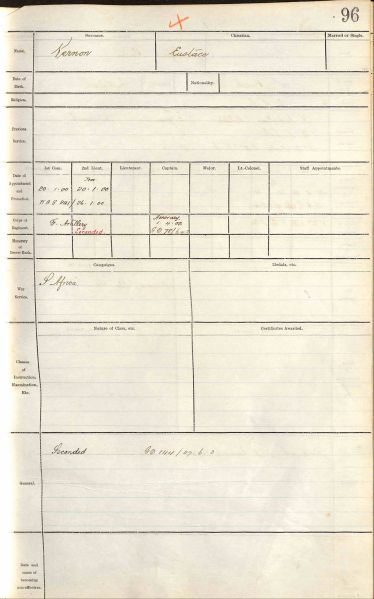 4
96
Surname. Christian. Married or Single.
Name. Vernon Eustace
Date of Birth. Nationality.
Religion.
Previous Service.
1st Com. 2nd Lieut. Lieutenant. Captain. Major. Lt.-Colonel. Staff Appointments.
Date of Appointment and Promotion.
20·1·00 20·1·00
Corps or Regiment. F. Artillery Honorary
Seconded
Honorary or Brevet Rank.
Campaigns. Medals, etc.
War Service. S Africa
Nature of Class, etc. Certificates Awarded.
Classes of Instruction, Examination, Etc.
Seconded GO 144/
General.
Date and cause of becoming non-effective.